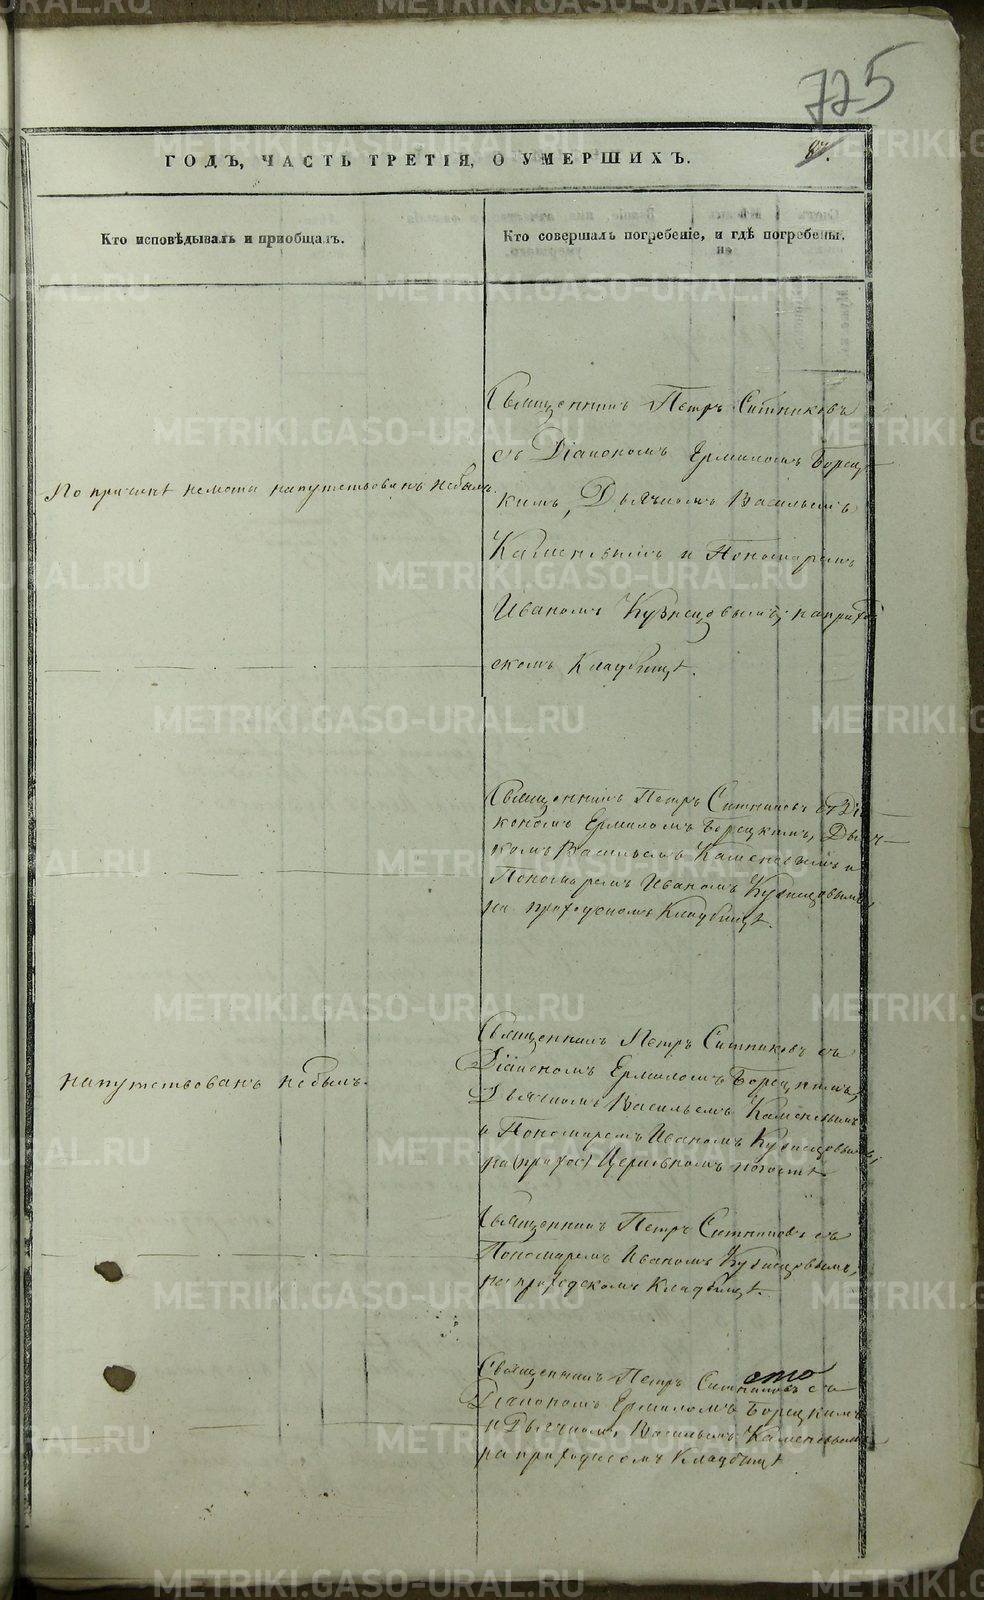 725
ГОДЪ, ЧАСТЬ ТРЕТІЯ, О УМЕРШИХЪ.
87.
Кто исповѣдывалъ и приобщалъ.
Кто совершалъ погребеніе, и гдѣ погребены.
По причинѣ немоты напутствованъ небылъ.
Священникъ Петръ Ситниковъ
съ Діакономъ Ермиломъ Борец-
кимъ, Дьячкомъ Васильемъ
Каменевымъ и Пономаремъ
Иваномъ Кузнецовымъ; на приход
скомъ Кладбищѣ.
Священникъ Петръ Ситниковъ съ Діа-
кономъ Ермиломъ Борецкимъ, Дьяч-
комъ Васильемъ Каменевымъ и
Пономаремъ Иваномъ Кузнецовымъ,
на приходскомъ Кладбищѣ.
напутствованъ небылъ.
Священникъ Петръ Ситниковъ съ
Діакономъ Ермиломъ Борецкимъ,
Дьячкомъ Васильемъ Каменевымъ
и Пономаремъ Иваномъ Кузнецовымъ;
на (прихос) Церковномъ погостѣ.
Священникъ Петръ Ситниковъ съ
Пономаремъ Иваномъ Кузнецовымъ,
на приходскомъ Кладбищѣ.
сто
Священникъ Петръ Ситниковъ съ
Діакономъ Ермиломъ Борецкимъ
и Дьячкомъ Васильемъ Каменевымъ
на приходскомъ Кладбищѣ
METRIKI.GASO-URAL.RU